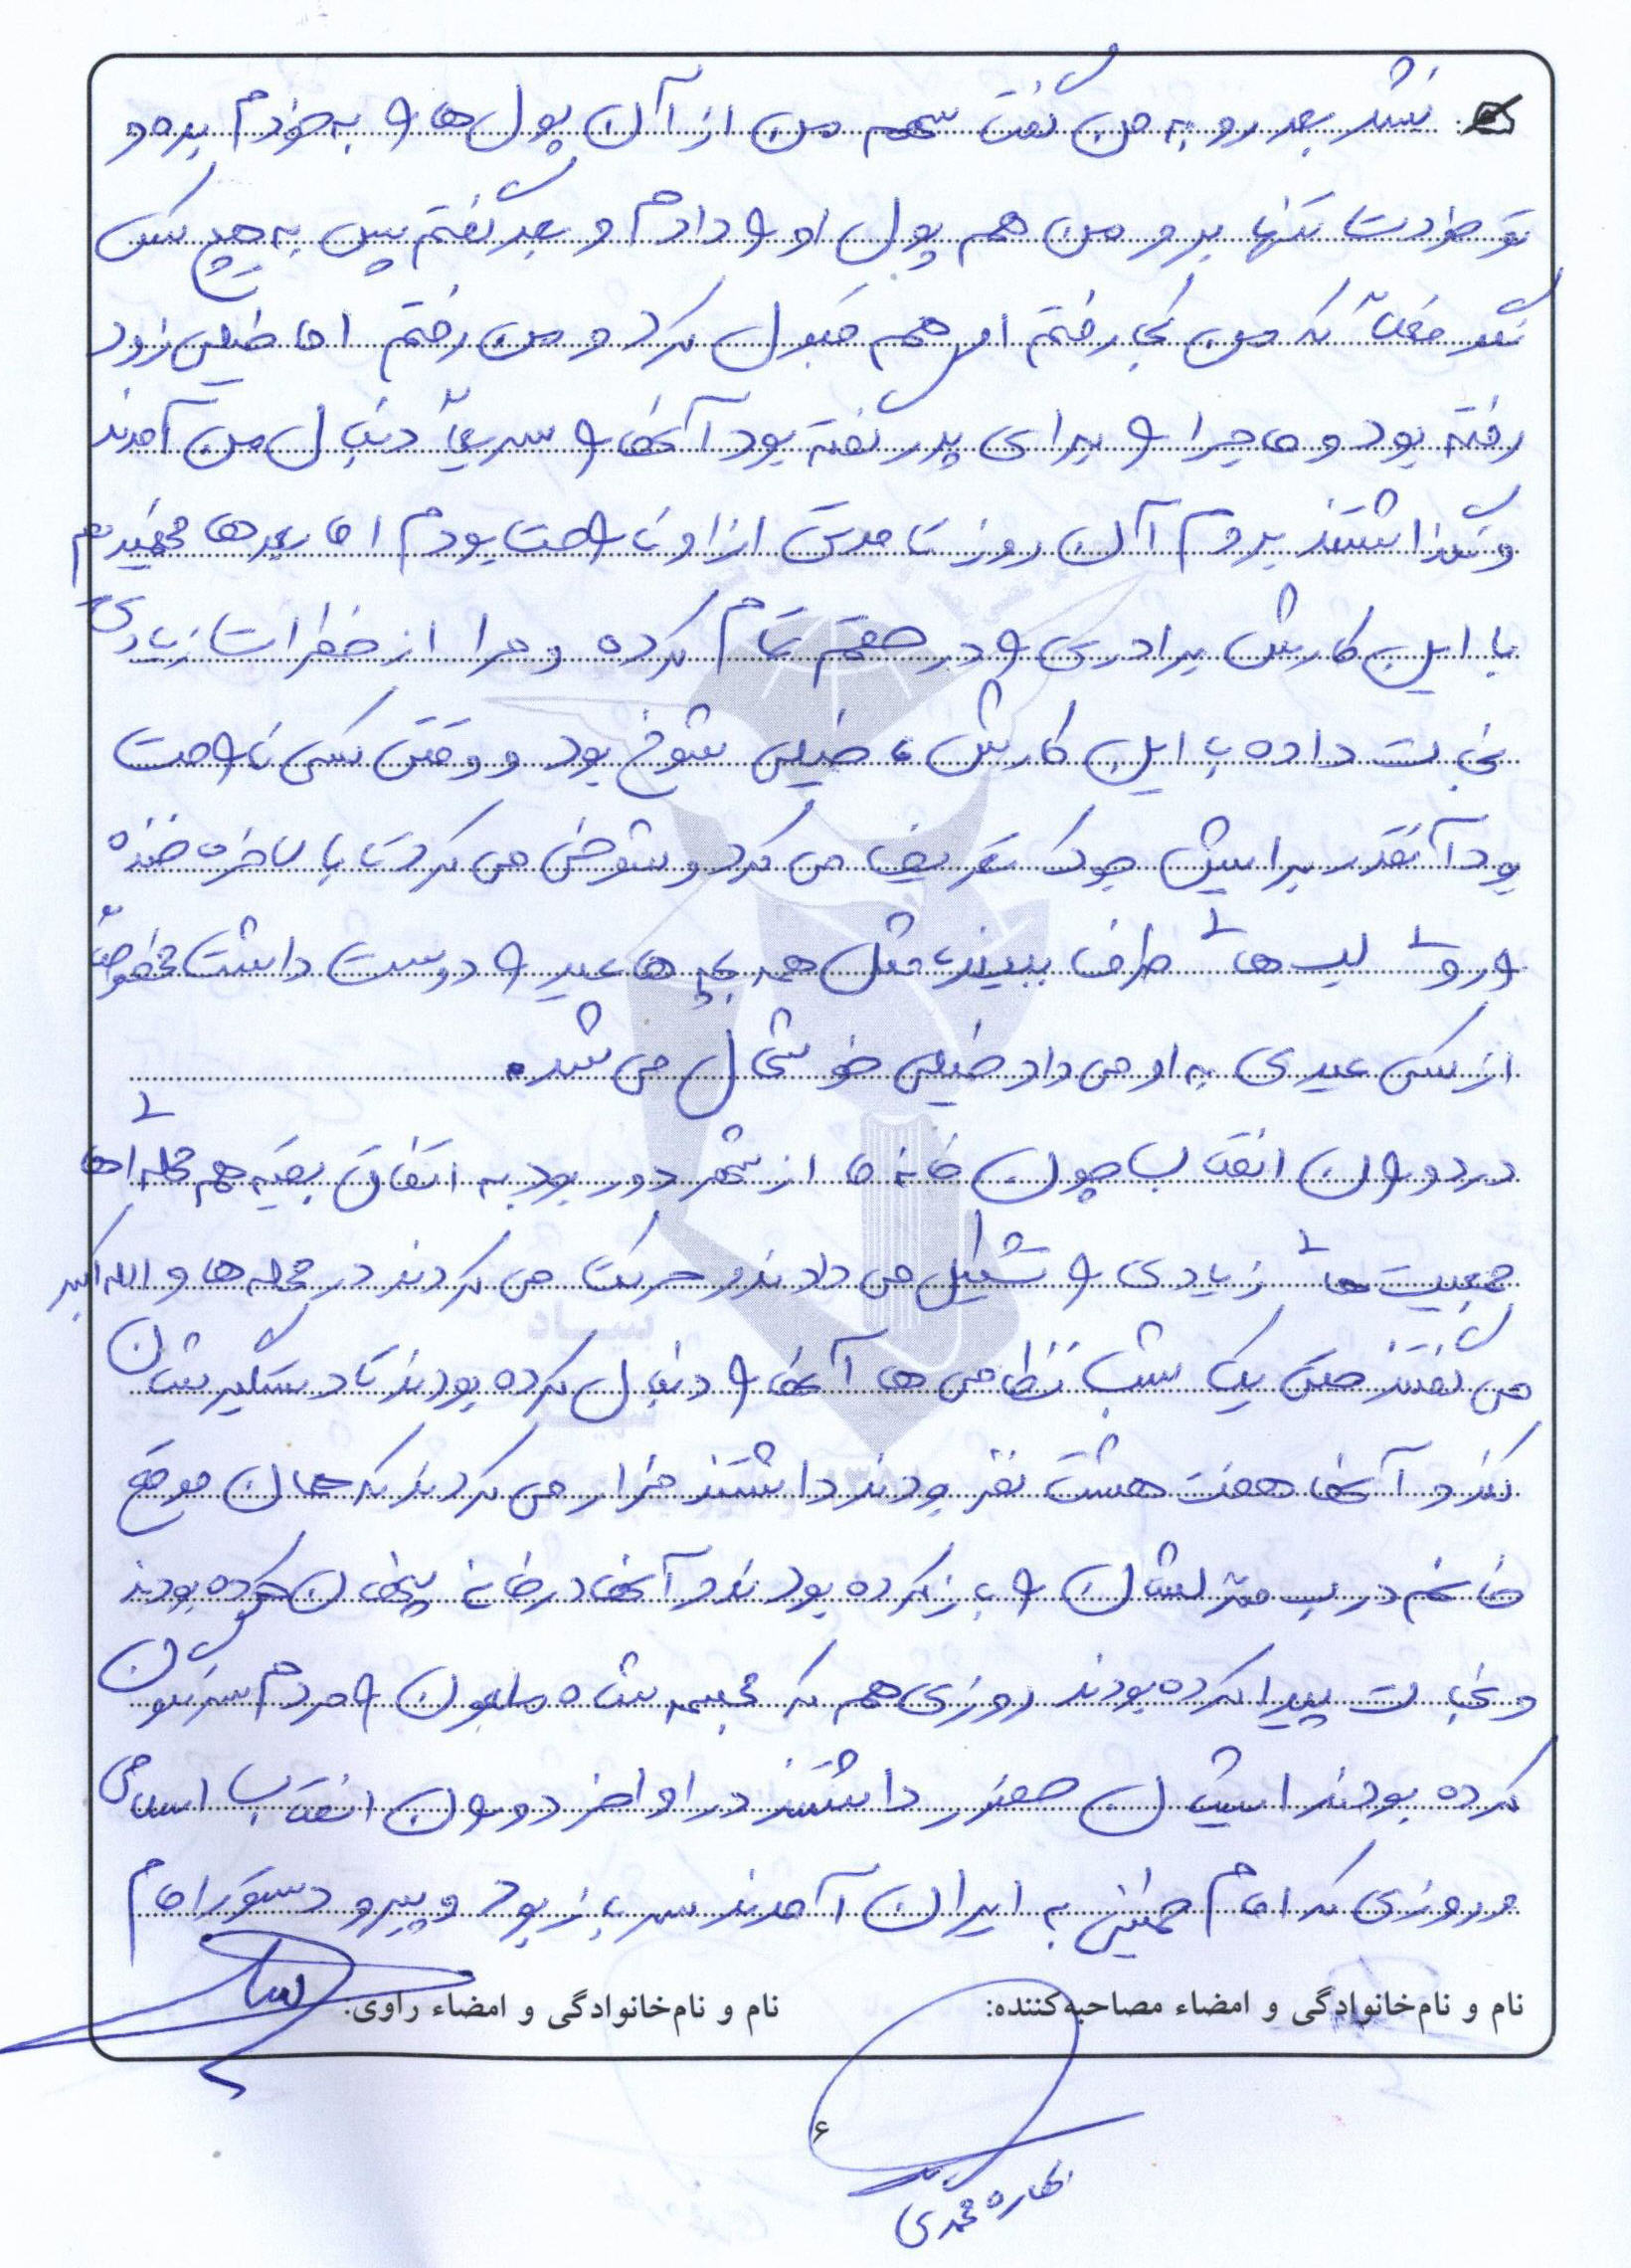 نشد بعد رو به من گفت سهم من از آن پول ها را به خودم بده و
تو خودت تنها برو من هم پول او را دادم و بعد گفتم پس به هیچ کس
نگو فعلاً که من کجا رفتم او هم قبول کرد و من رفتم اما خیلی زود
رفته بود و ماجرا را برای پدر گفته بود آنها را سریعاً دنبال من آمدند
و نگذاشتند بروم آن روز تا مدتی از او ناراحت بودم اما بعدها فهمیدم
با این کارش برادری را در حقم تمام کرده و مرا از خطرات زیادی
نجات داده با این کارش، خیلی شوخ بود و وقتی کسی ناراحت
بود آنقدر برایش جوک تعریف می کرد و شوخی می کرد تا بالاخره خنده
را روی لب های طرف ببیند، مثل همه بچه ها عید را دوست داشت مخصوصاً
از کسی عیدی به او می داد خیلی خوشحال می شد.
در دوران انقلاب چون خانه ما از شهر دور بود به اتفاق بقیه هم محله ای ها
جمعیت های زیادی را تشکیل می دادند و حرکت می کردند در محله ها و الله اکبر
می گفتند حتی یک شب نظامی ها آنها را دنبال کرده بودند تا دستگیرشان
کنند و آنها هفت هشت نفر بودند داشتند فرار می کردند که همان موقع
خانم درب منزلشان را باز کرده بودند و آنها در خانه پنهان کرده بودند
و نجات پیدا کرده بودند روزی هم که مجسمه شاه ملعون را مردم سرنگون
کرده بودند ایشان حضور داشتند در اواخر دوران انقلاب اسلامی
و روزی که امام خمینی به ایران آمدند سرباز بود و پیرو دستور امام
نام و نام خانوادگی و امضاء مصاحبه کننده:
نام و نام خانوادگی و امضاء راوی:
۶
محمدی